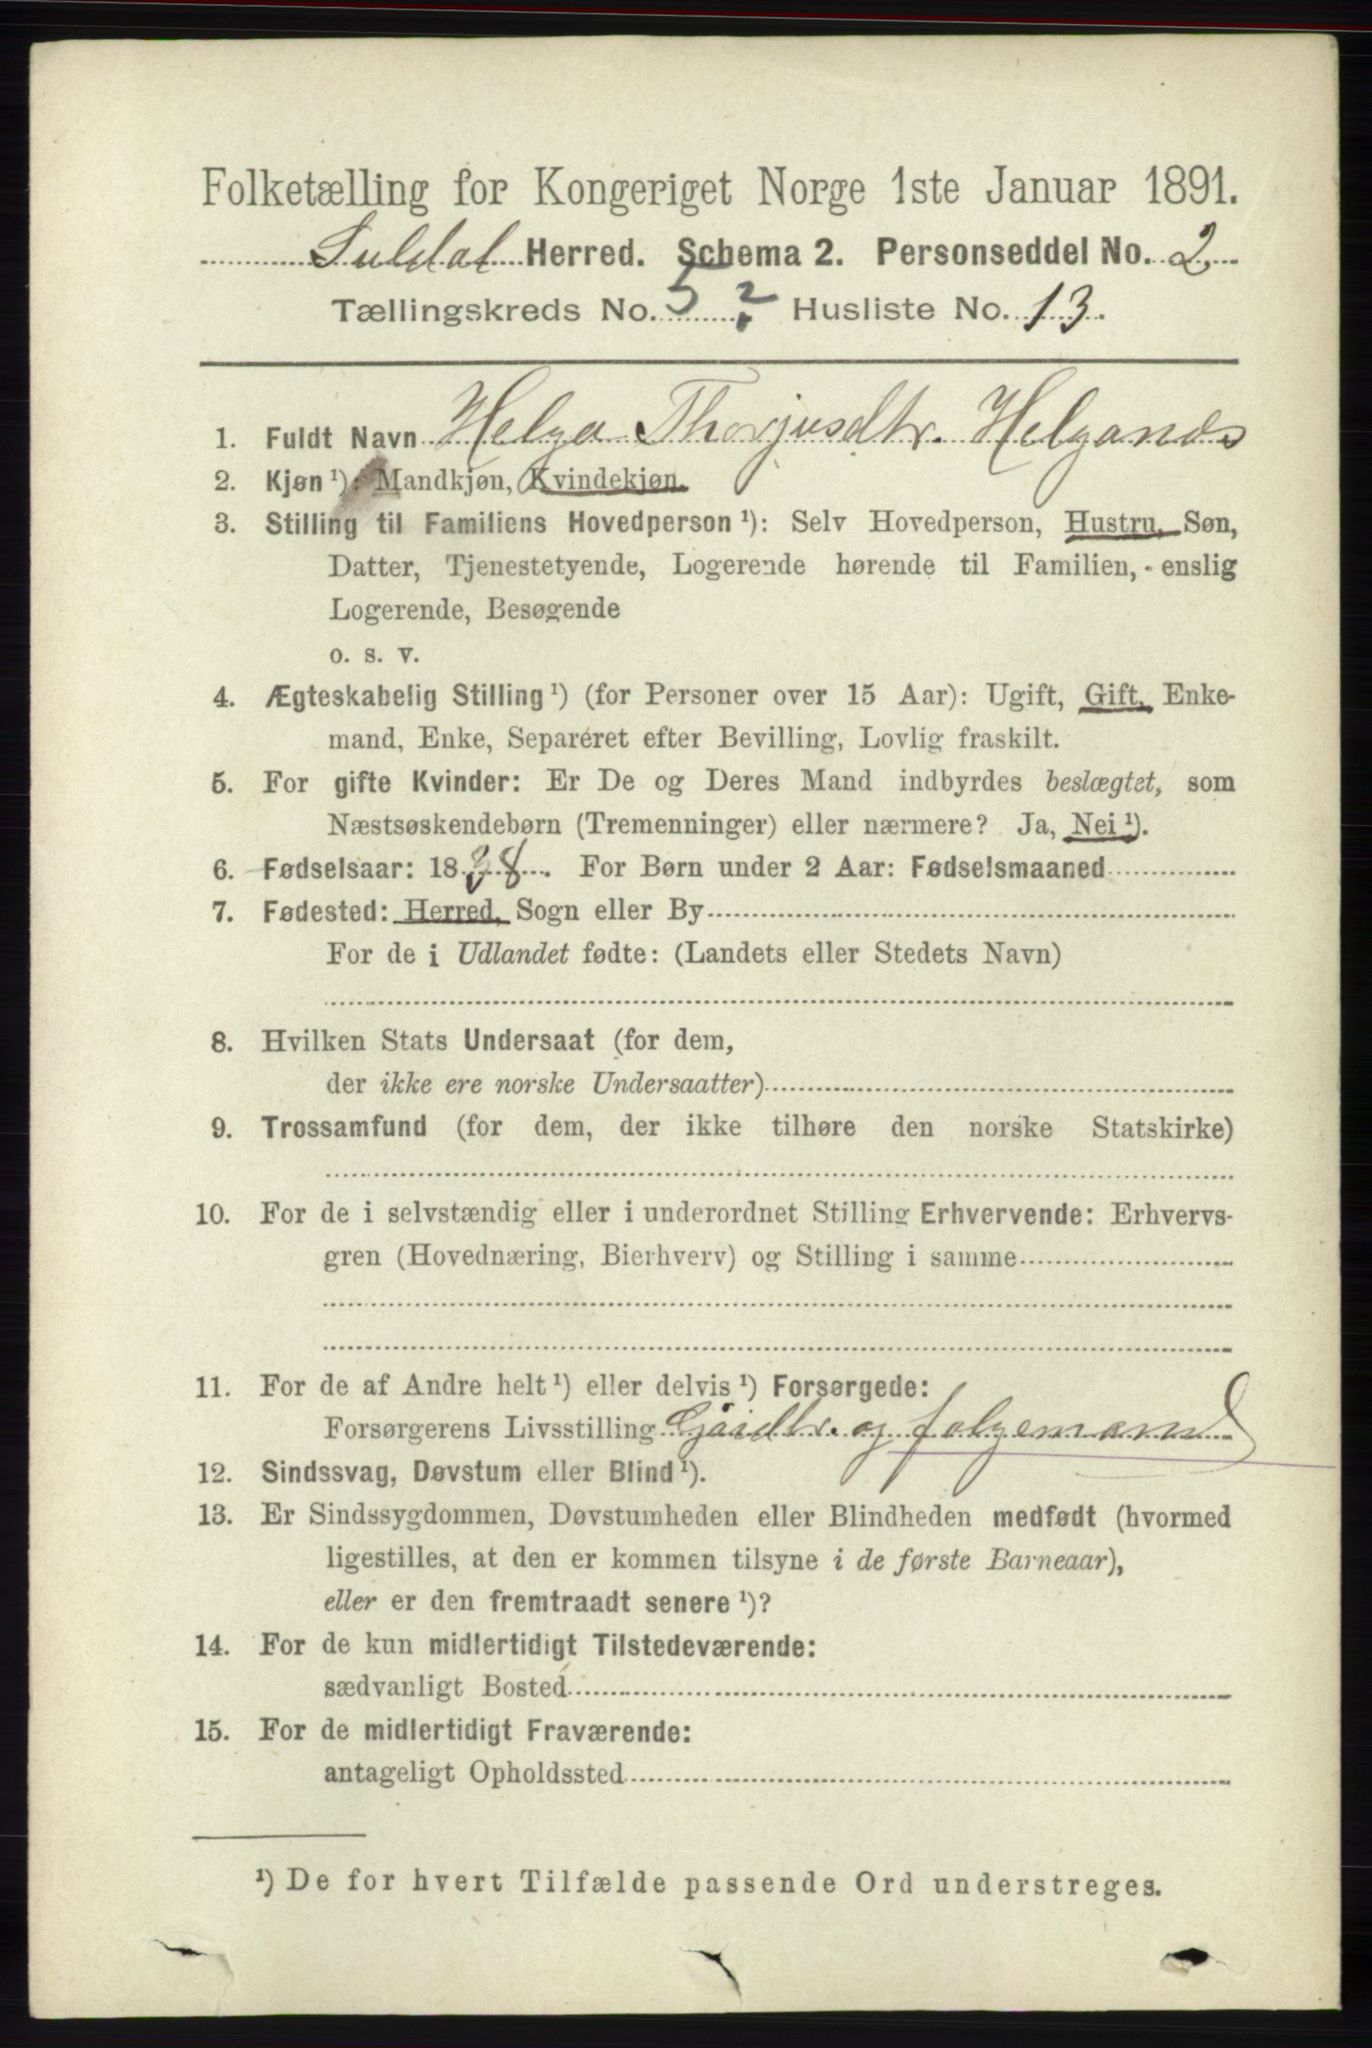 Folketælling for Kongeriget Norge 1ste Januar 1891.
Suldal Herred. Schema 2. Personseddel No. 2
Tællingskreds No. 5 ? Husliste No. 13.
1. Fuldt Navn Helga Thorjusdtr. Helganæs
2. Kjøn ¹): Mandkjøn, Kvindekjøn.
3. Stilling til Familiens Hovedperson ¹): Selv Hovedperson, Hustru, Søn,
Datter, Tjenestetyende, Logerende hørende til Familien, enslig
Logerende, Besøgende
o. s. v.
4. Ægteskabelig Stilling ¹) (for Personer over 15 Aar): Ugift, Gift, Enke-
mand, Enke, Separéret efter Bevilling, Lovlig fraskilt.
5. For gifte Kvinder: Er De og Deres Mand indbyrdes beslægtet, som
Næstsøskendebørn (Tremenninger) eller nærmere? Ja, Nei ¹).
6. Fødselsaar: 1838. For Børn under 2 Aar: Fødselsmaaned
7. Fødested: Herred, Sogn eller By
For de i Udlandet fødte: (Landets eller Stedets Navn)
8. Hvilken Stats Undersaat (for dem,
der ikke ere norske Undersaatter)
9. Trossamfund (for dem, der ikke tilhøre den norske Statskirke)
10. For de i selvstændig eller i underordnet Stilling Erhvervende: Erhvervs-
gren (Hovednæring, Bierhverv) og Stilling i samme
11. For de af Andre helt ¹) eller delvis ¹) Forsørgede:
Forsørgerens Livsstilling Gaardbr. og folgemand
12. Sindssvag, Døvstum eller Blind ¹).
13. Er Sindssygdommen, Døvstumheden eller Blindheden medfødt (hvormed
ligestilles, at den er kommen tilsyne i de første Barneaar),
eller er den fremtraadt senere ¹)?
14. For de kun midlertidigt Tilstedeværende:
sædvanligt Bosted
15. For de midlertidigt Fraværende:
antageligt Opholdssted
¹) De for hvert Tilfælde passende Ord understreges.